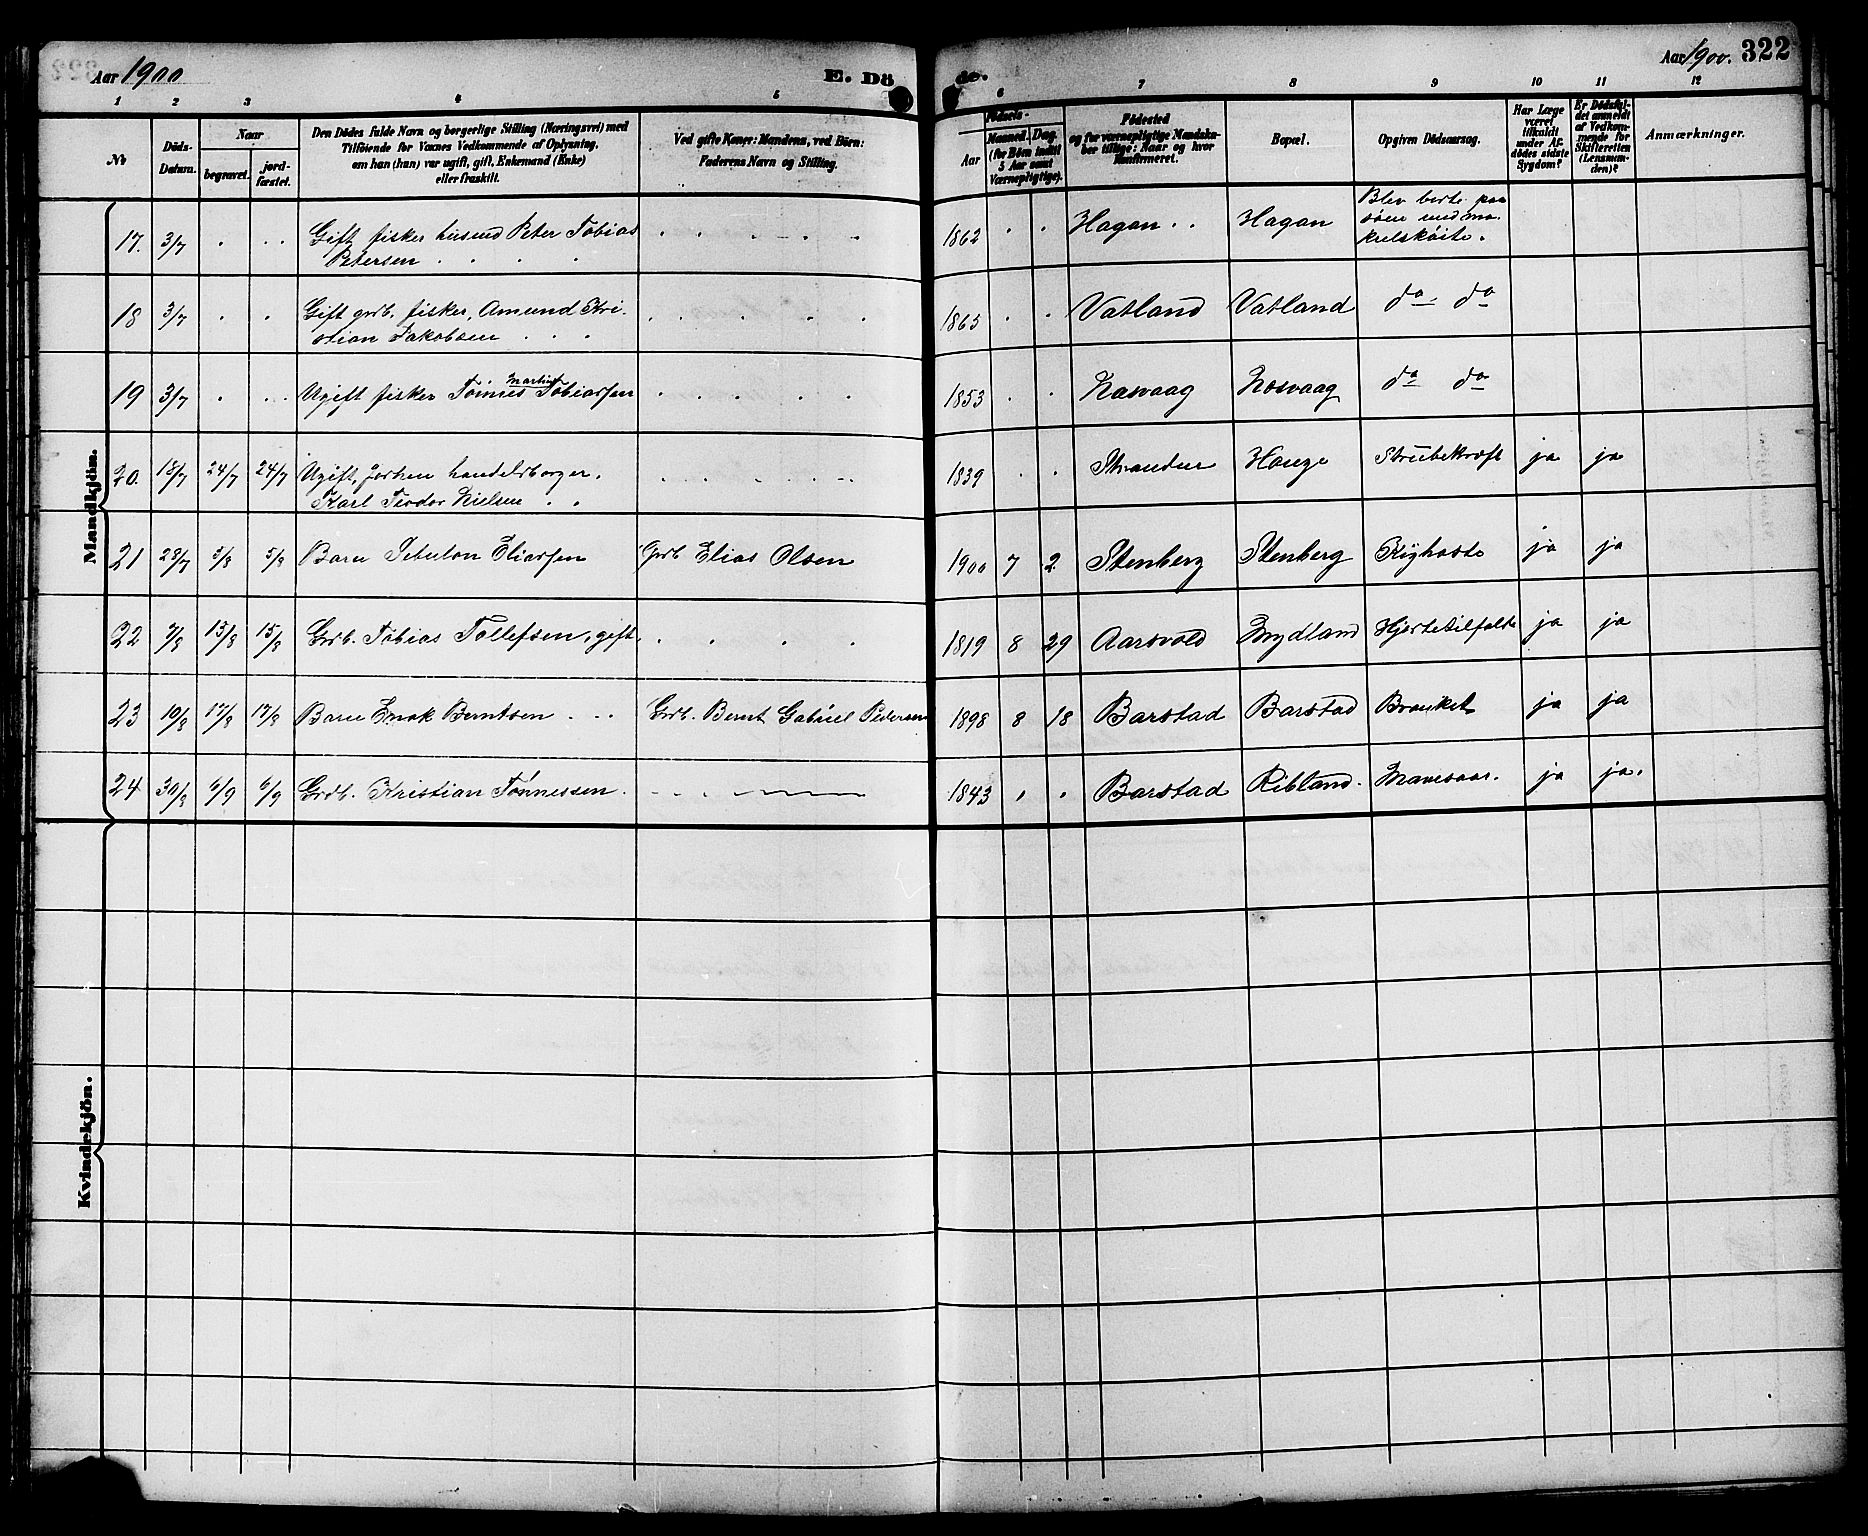 Aar 1900
E. Dö
de.
Aar 1900. 322
1 2 3 4 5 6 7 8 9 10 11 12
№
Döds-Datum.
Naar
begravet.
jord-fæstet.
Den Dödes fulde Navn og borgerlige Stilling (Næringsvei) med
Tilföiende for Voxnes Vedkommende af Oplysning,
om han (hun) var ugift, gift, Enkemand (Enke)
eller fraskilt.
Ved gifte Koner: Mandens, ved Börn:
Faderens Navn og Stilling.
Födsels-
Aar
Maaned. Dag.
(for Börn indtil
5 Aar samt
Værnepligtige).
Födested
og for værnepligtige Mandska-
ber tillige: Naar og hvor
konfirmeret.
Bopæl.
Opgiven Dödsaarsag.
Har Læge
været
tilkaldt
under Af-
dödes sidste
Sygdom?
Er Dödsfal-
det anmeldt
af Vedkom-
mende for
Skifteretten
(Lensman-
den)?
Anmærkninger.
Mandkjön.
17. 3/7 Gift fisker husmd Peter Tobias
Petersen 1862 Hagan Hagan Blev borte paa
söen med ma-
krelsköite.
18 3/7 Gift grdb. fisker, Amund Kri-
stian Jakobsen 1865 Vatland Vatland do do
19 3/7 Ugift fisker Tönnes Martin Tobiassen 1853 Rosvaag do do
20. 18/7 24/7 24/7 Ugift, handelsborger.
Karl Teodor Nielsen 1839 Hauge Strubekræft ja ja
21 28/7 5/8 5/8 Barn Sebulon Eliassen Grdb Elias Olsen 1900 7 2 Stenberg Stenberg Kighoste ja ja
22 7/8 15/8 15/8 Grdb. Tobias Tollefsen, gift 1819 8 29 Aarsvold Mydland Hjertetilfælde ja ja
23 10/8 17/8 17/8 Barn Enok Berntsen Grdb. Bernt Gabriel Pedersen 1898 8 18 Barstad Barstad Bronkit ja ja
24 30/8 6/9 6/9 Grdb. Kristian Tönnessen. 1843 Barstad Ribland. Mavesaar. ja ja.
Kvindekjön.